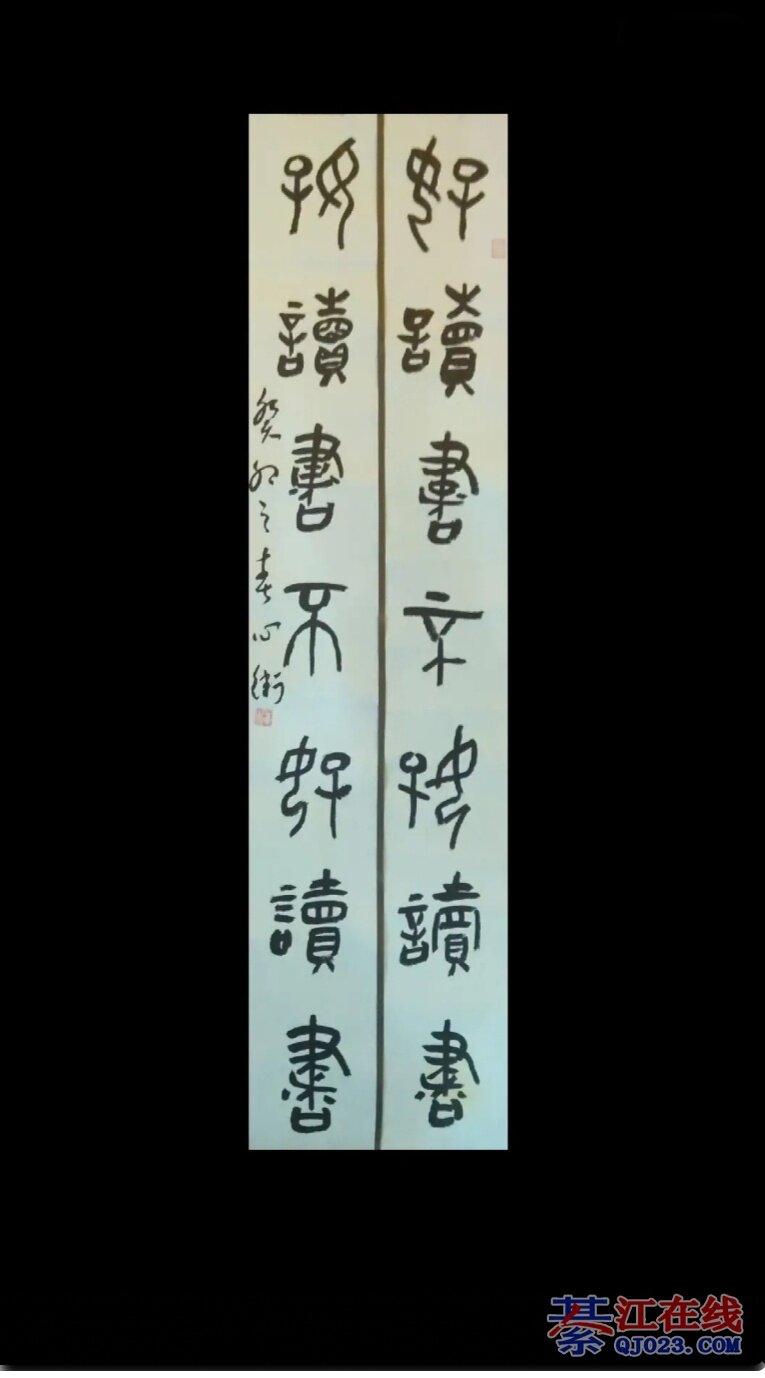 好讀書不好讀書
好讀書不好讀書
癸卯之春心
綦江在线
QJ023.COM